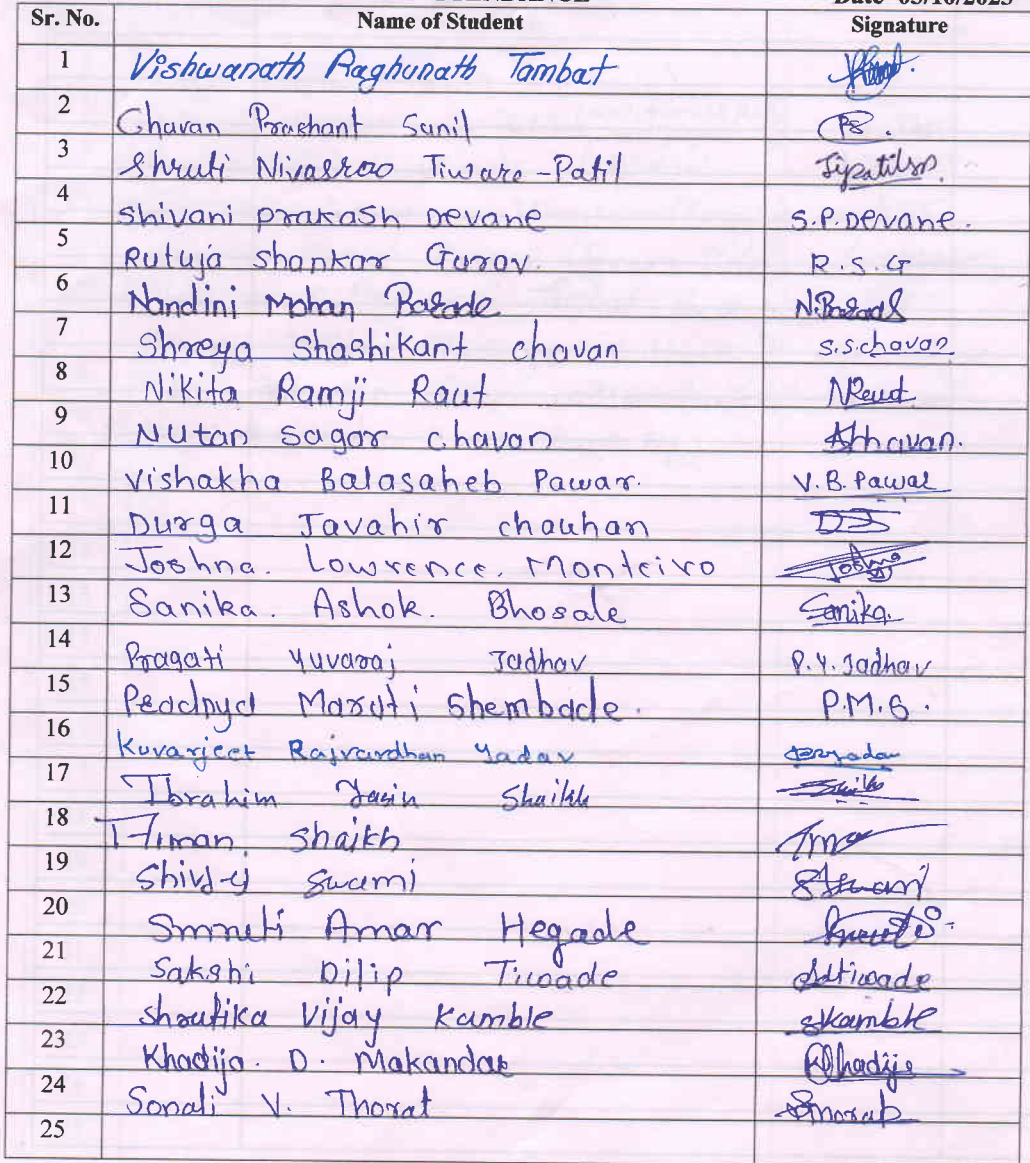 Date
Sr. No. Name of Student Signature
1 Vishwanath Raghunath Tambat
2 Chavan Prashant Sunil PS.
3 Shruti Nivasrao Tiware-Patil
4 Shivani prakash Devane S.P.Devane.
5 Rutuja Shankar Gurav. R.S.G
6 Nandini Mohan
7 Shreya Shashikant chavan S.S.chavan
8 Nikita Ramji Raut NRaut
9 Nutan Sagar chavan
10 Vishakha Balasaheb Pawar. V.B.Pawar
11 Durga Javahir chauhan
12 Joshna. Lowrence. Monteiro
13 Sanika. Ashok. Bhosale Sanika.
14 Pragati Yuvaraj Jadhav P.Y.Jadhav
15 Maruti Shembade. P.M.S.
16 Kuvarjeet Rajvardhan Yadav
17 Ibrahim Yasin Shaikh
18 Shaikh
19 Swami
20 Amar Hegade
21 Sakshi Dilip Tiwade
22 Shrutika Vijay Kamble skamble
23 Khadija. D. Makandar Khadija
24 Sonali V. Thorat
25